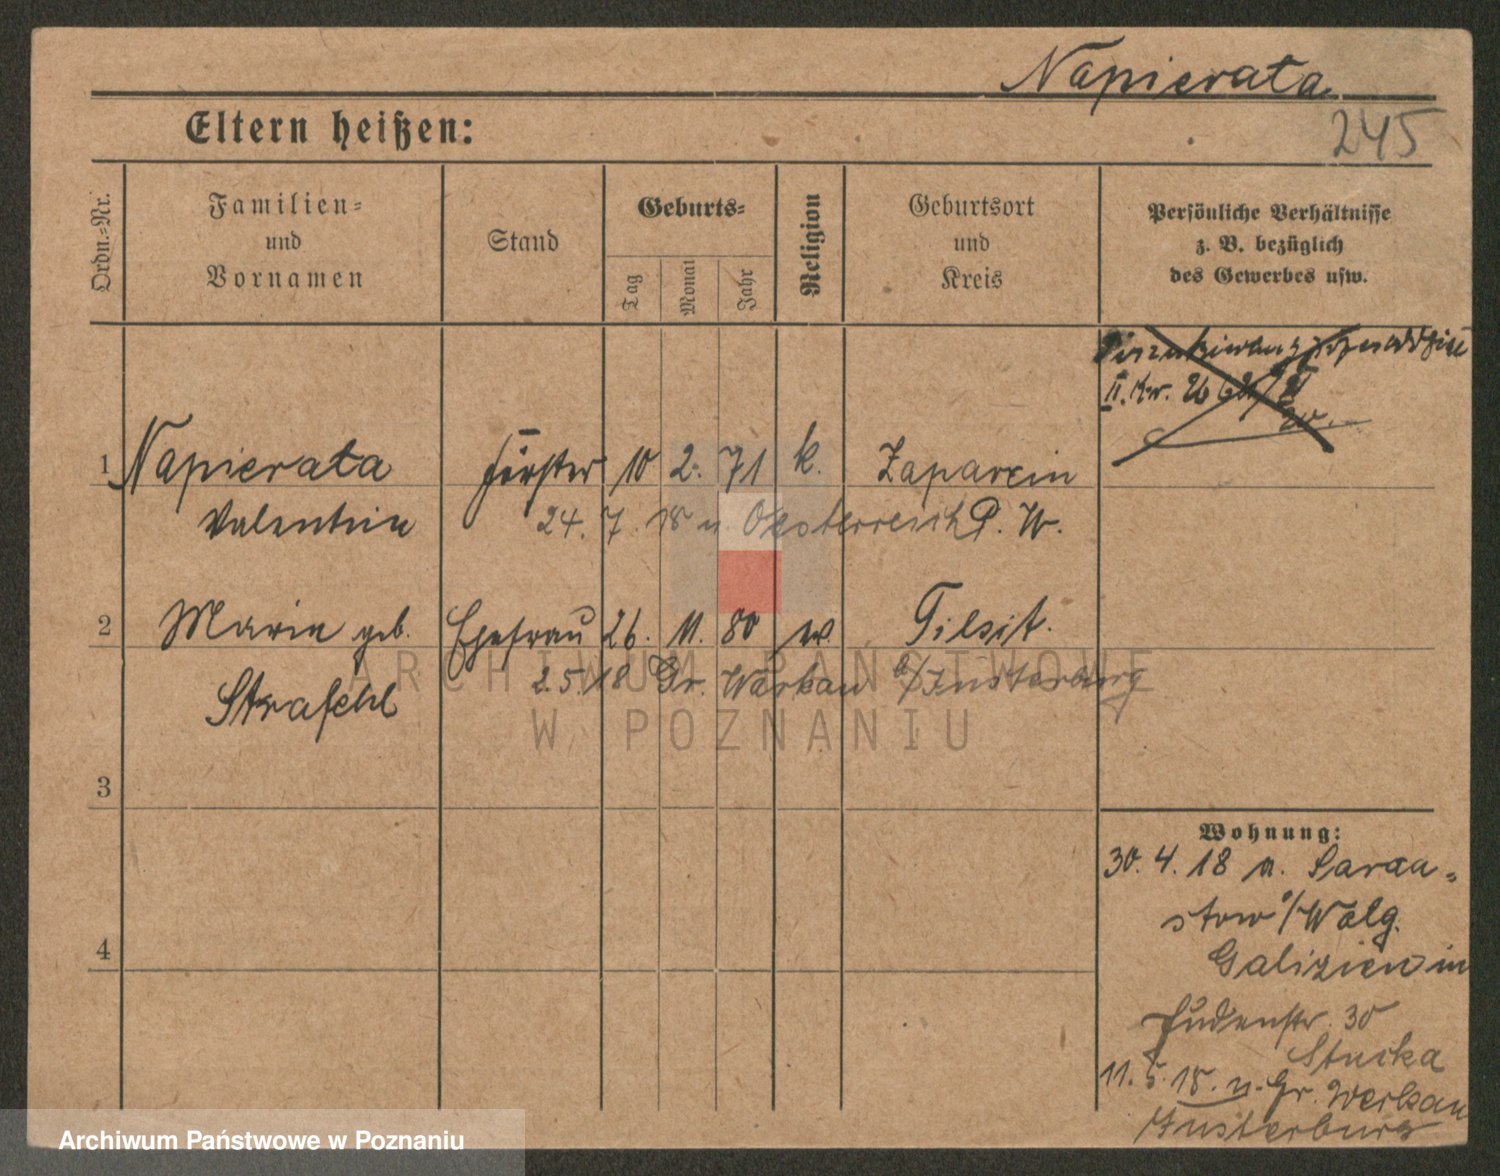 Napierata
245
Eltern heißen:
Ordn.-Nr.
Familien-
und
Vornamen
Stand
Geburts-
Tag
Monat
Jahr
Religion
Geburtsort
und
Kreis
Persönliche Verhältnisse
z. B. bezüglich
des Gewerbes usw.
II. Kr. 26
1 Napierata Förster 10 2. 71 k. Zaparcin
Valentin 24. 7. 18 n. Oesterreich P. W.
2 Maria geb. Ehefrau 26. 11. 80 w. Tilsit.
2.5.18 Gr. Warkau b/Insterburg
3
4
Wohnung:
30. 4. 18 a.
Galizien in
Judenstr. 30
11. 5. 18. n. Gr. Werkau
Insterburg
ARCHIWUM PAŃSTWOWE
W POZNANIU
Archiwum Państwowe w Poznaniu